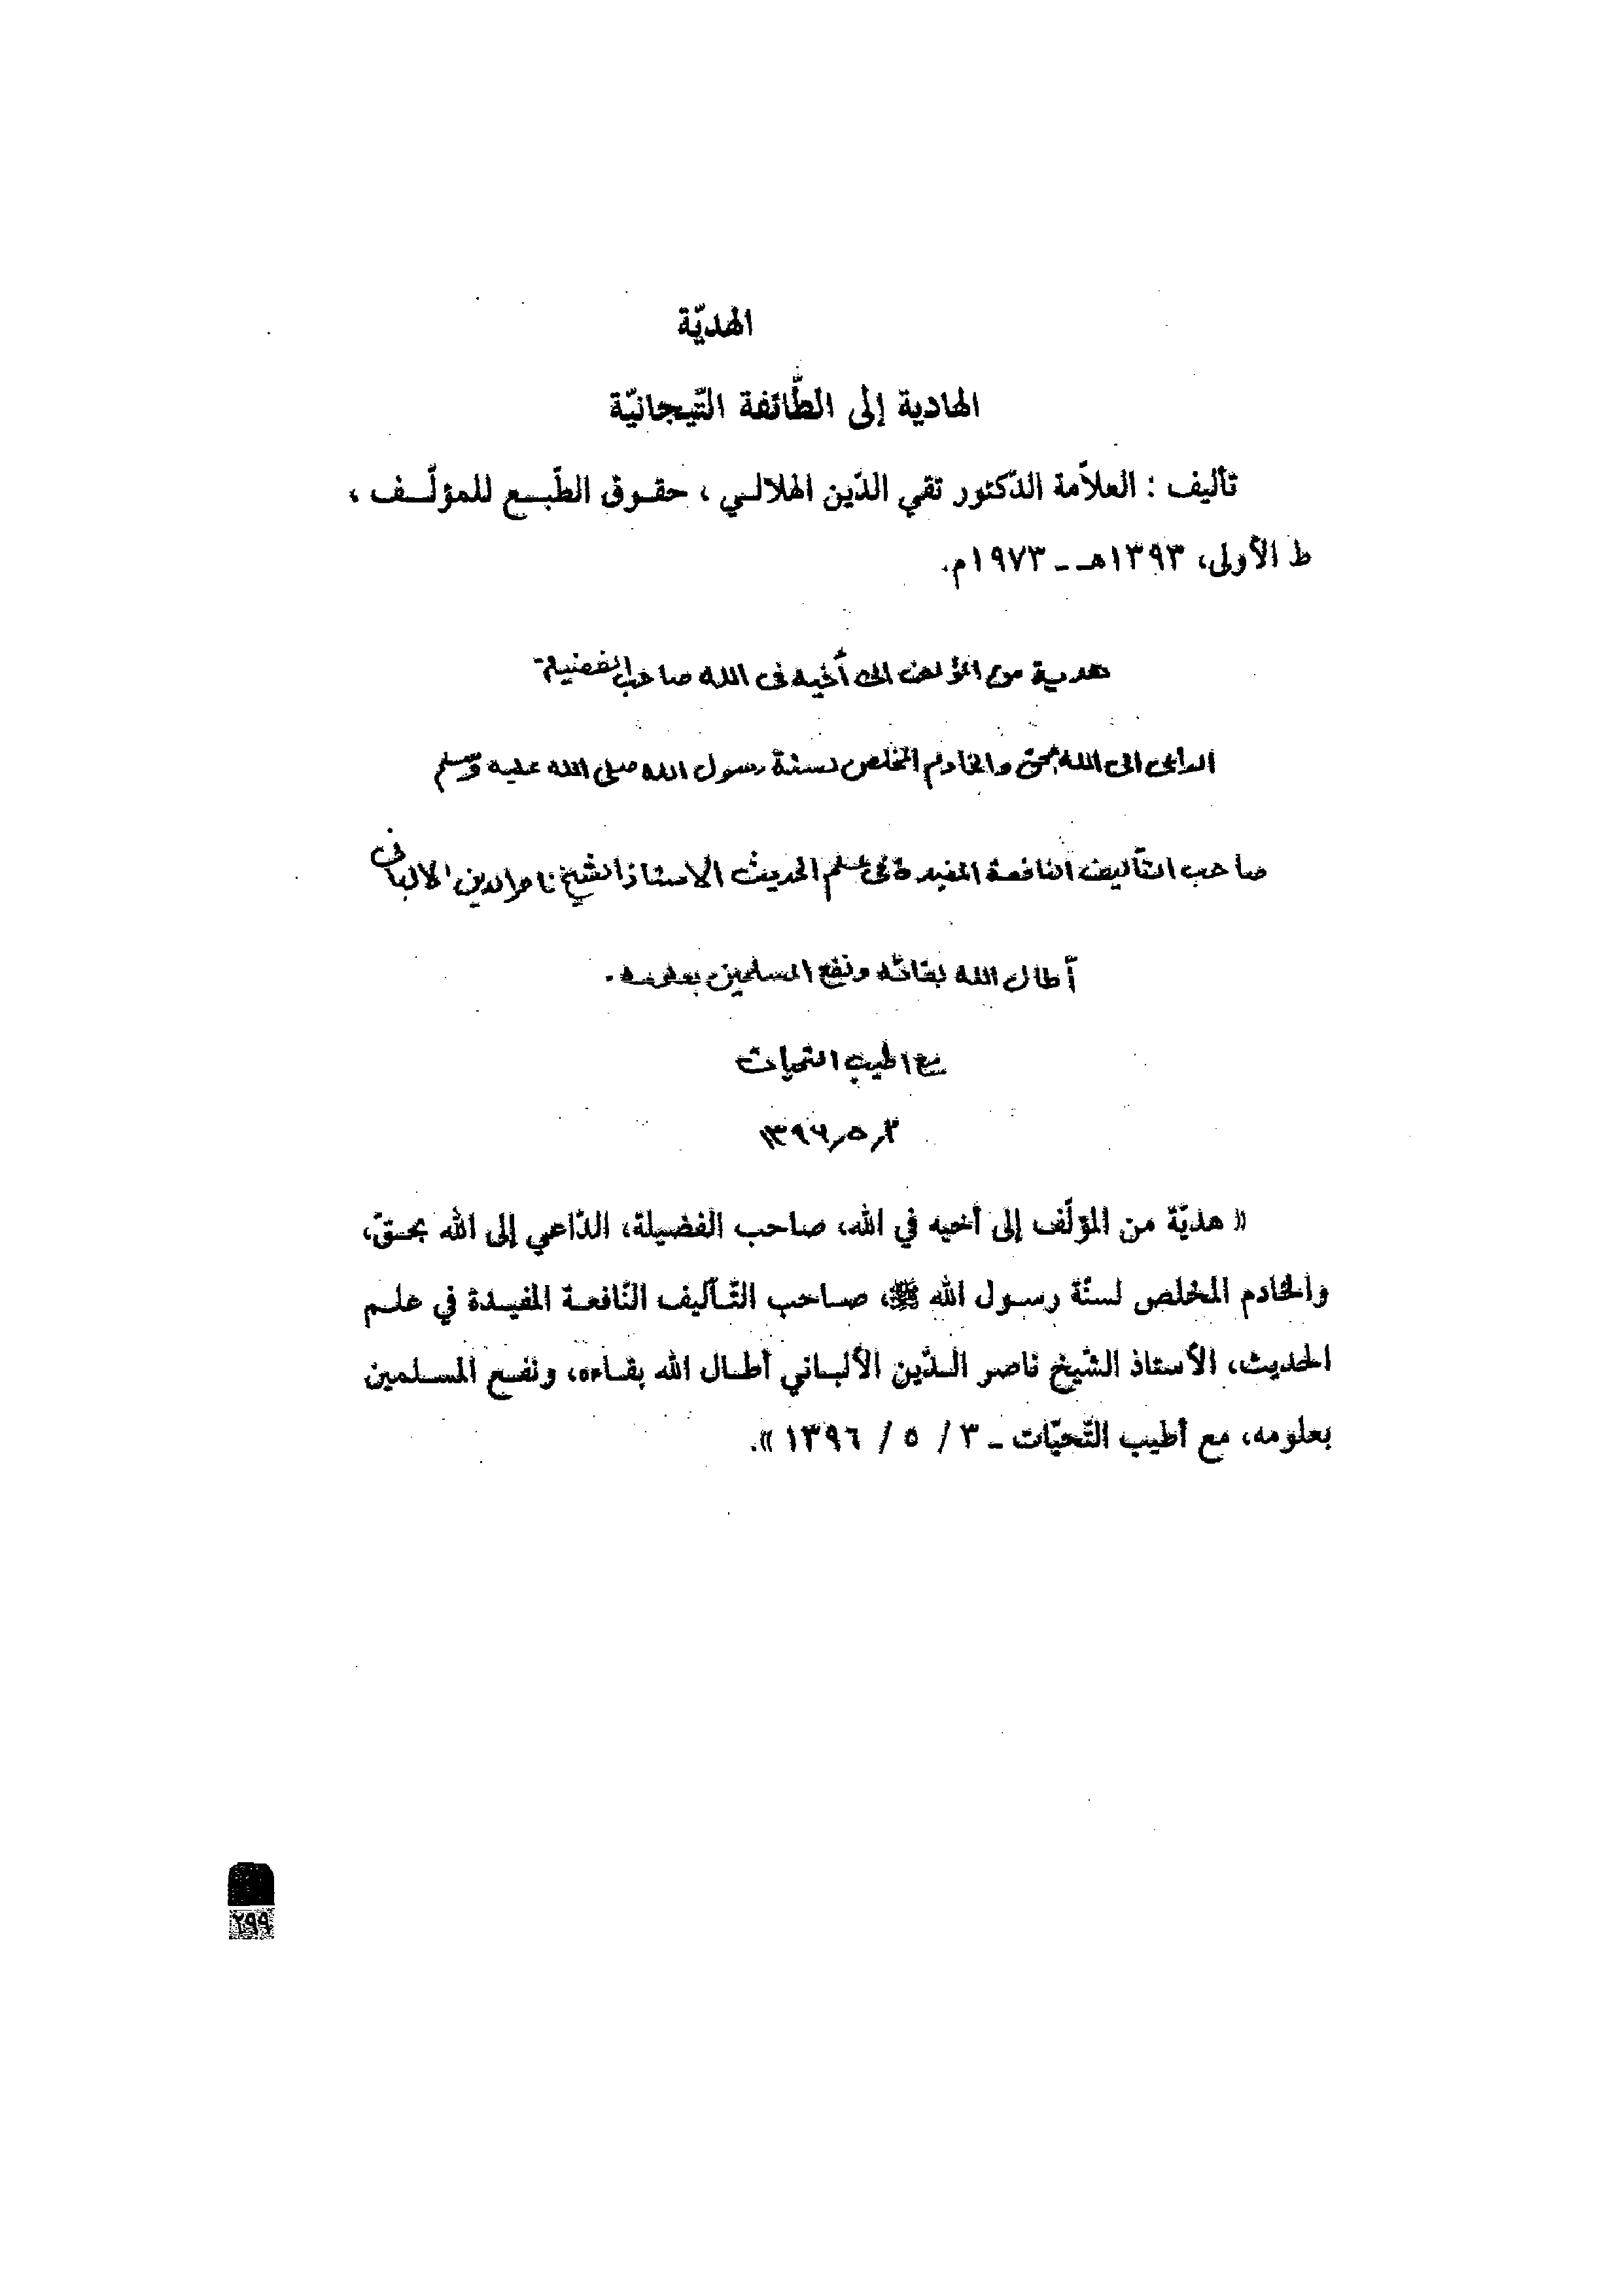 الهديّة
الهادية إلى الطّائفة التّيجانيّة
تأليف : العلاّمة الدّكتور تقي الدّين الهلالـي ، حقـوق الطّبـع للمؤلّـف ،
ط الأولى، ١٣٩٣هـ ـ ١٩٧٣م.
هدية من المؤلف الى أخيه في الله صاحب الفضيلة
الداعى الى الله بحق والخادم المخلص لسنة رسول الله صلى الله عليه وسلم
صاحب التآليف النافعة المفيدة فى علم الحديث الاستاذ الشيخ ناصر الدين الالبانى
أطال الله بقائه ونفع المسلمين بعلومه .
مع اطيب التحيات
٣ر٥ر١٣٩٦
« هديّة من المؤلّف إلى أخيه في الله، صاحب الفضيلة، الدّاعي إلى الله بحـقّ،
والخادم المخلص لسنّة رسـول الله ﷺ، صـاحب التّـآليف النّافعـة المفيـدة في علـم
الحديث، الأستاذ الشّيخ ناصر الـدّين الألبـاني أطـال الله بقـاءه، ونفـع المسـلمين
بعلومه، مع أطيب التّحيّات ـ ٣ / ٥ / ١٣٩٦ ».
٢٩٩